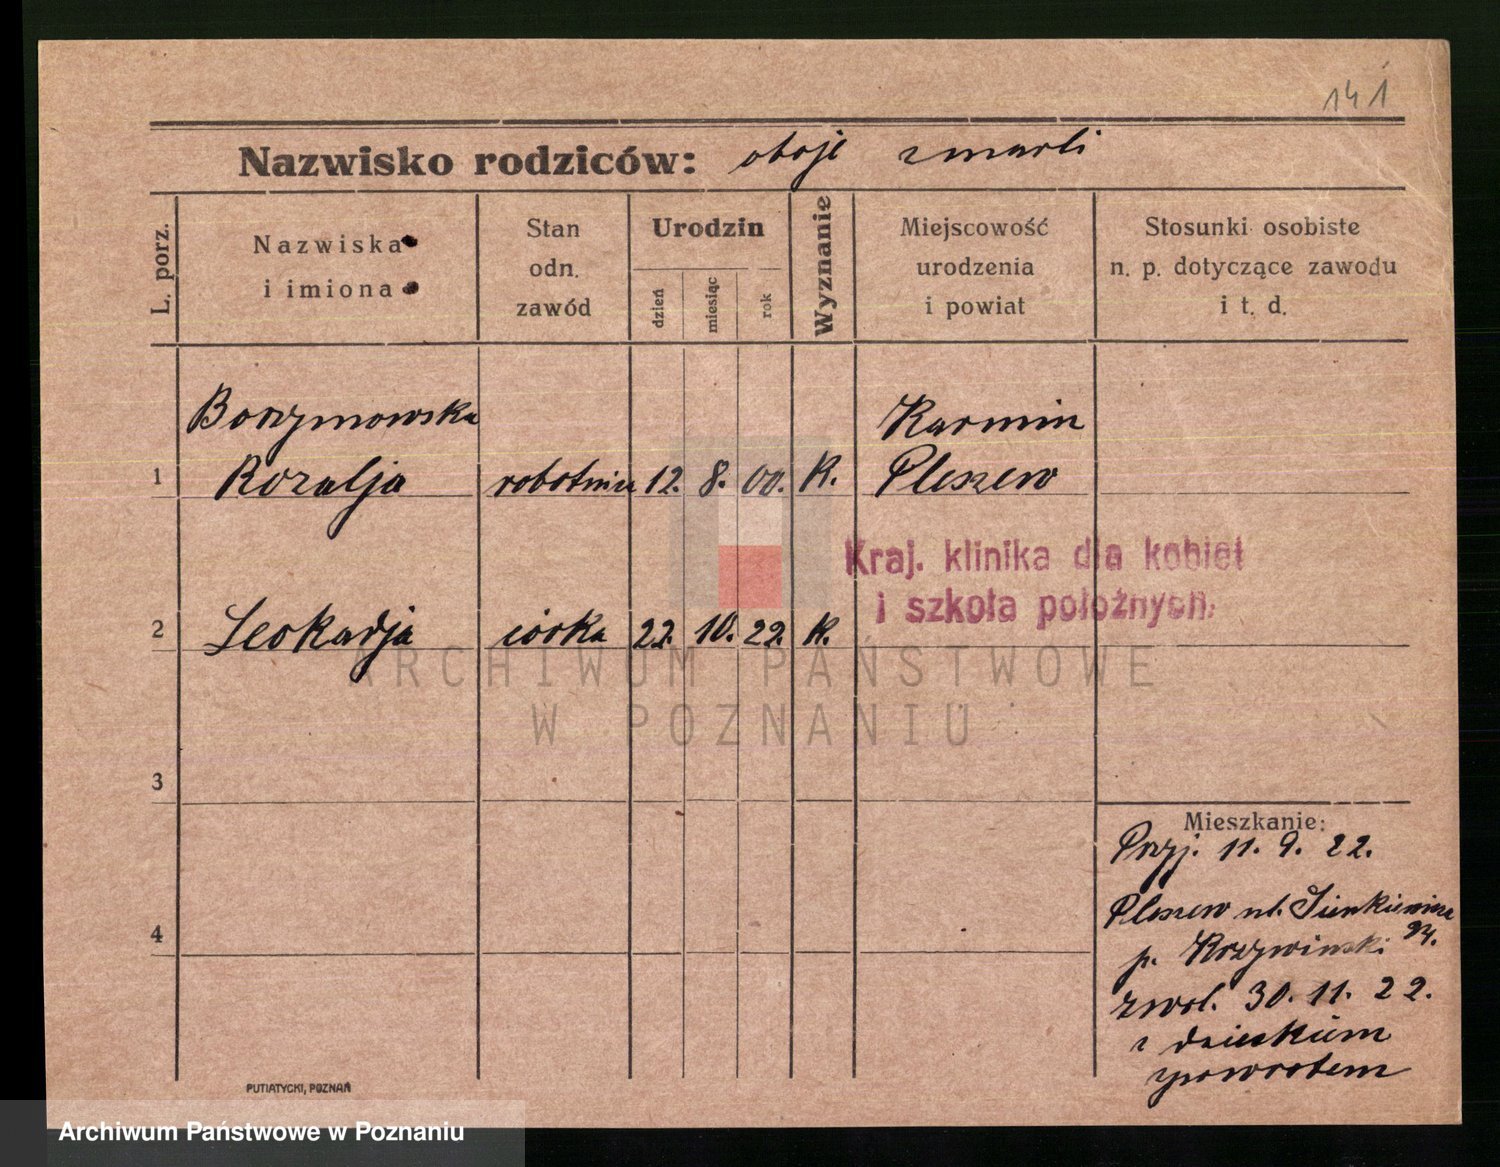 141
Nazwisko rodziców: oboje zmarli
L. porz.
Nazwiska
i imiona
Stan
odn.
zawód
Urodzin
dzień
miesiąc
rok
Wyznanie
Miejscowość
urodzenia
i powiat
Stosunki osobiste
n. p. dotyczące zawodu
i t. d.
Borzymowska Karmin
1 Rozalja robotnica 12. 8. 00. K. Pleszew
Kraj. klinika dla kobiet
i szkoła położnych.
2 Leokadja córka 22. 10. 22. K.
ARCHIWUM PAŃSTWOWE
W POZNANIU
3
Mieszkanie:
Przyj. 11. 9. 22.
Pleszew ul. Sienkiewicza
p. Krzywinski 24.
zwol. 30. 11. 22.
z dzieckiem
zpowrotem
4
PUTIATYCKI, POZNAŃ
Archiwum Państwowe w Poznaniu